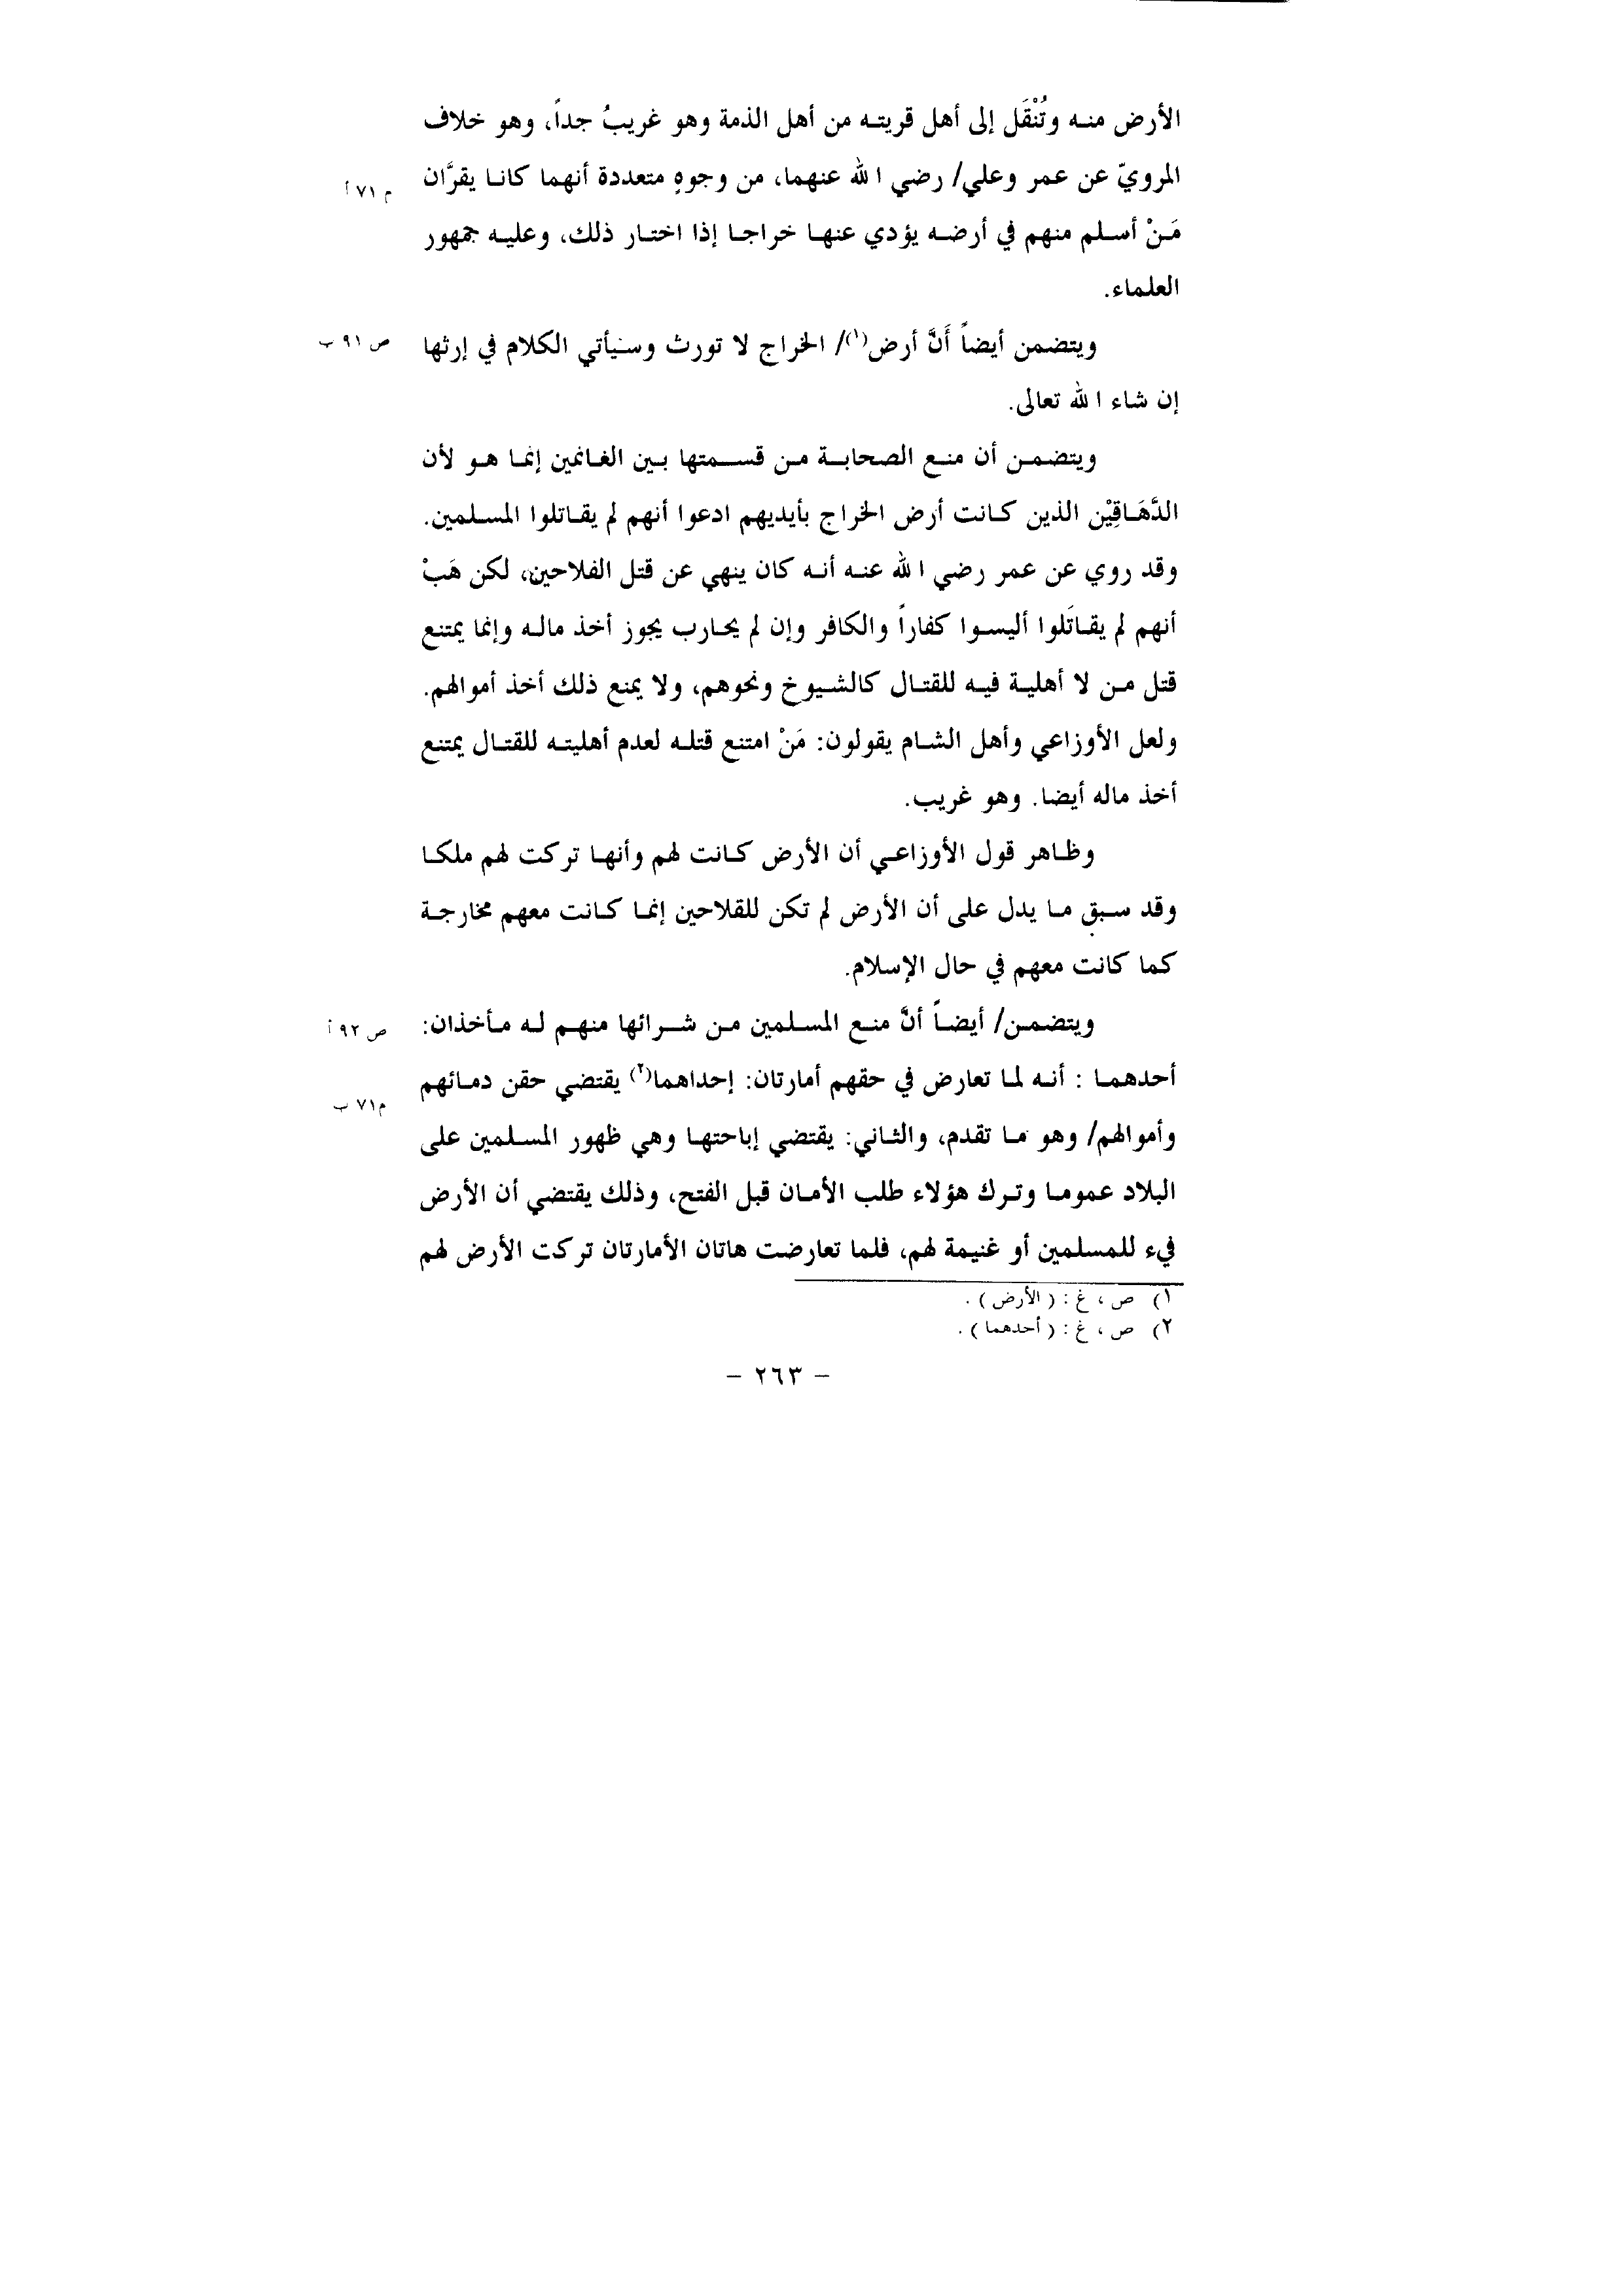 الأرض منه وتُنْقَل إلى أهل قريته من أهل الذمة وهو غريبٌ جداً، وهو خلاف
المرويّ عن عمر وعلي/ رضي الله عنهما، من وجوهٍ متعددة أنهما كانا يقرَّان
م ٧١ أ
مَنْ أسلم منهم في أرضه يؤدي عنها خراجا إذا اختار ذلك، وعليه جمهور
العلماء.
ويتضمن أيضاً أَنَّ أرض(١)/ الخراج لا تورث وسيأتي الكلام في إرثها
ص ٩١ ب
إن شاء الله تعالى.
ويتضمن أن منع الصحابة من قسمتها بين الغانمين إنما هو لأن
الدَّهَاقِيْن الذين كانت أرض الخراج بأيديهم ادعوا أنهم لم يقاتلوا المسلمين.
وقد روي عن عمر رضي الله عنه أنه كان ينهي عن قتل الفلاحين، لكن هَبْ
أنهم لم يقاتَلوا أليسوا كفاراً والكافر وإن لم يحارب يجوز أخذ ماله وإنما يمتنع
قتل من لا أهلية فيه للقتال كالشيوخ ونحوهم، ولا يمنع ذلك أخذ أموالهم.
ولعل الأوزاعي وأهل الشام يقولون: مَنْ امتنع قتله لعدم أهليته للقتال يمتنع
أخذ ماله أيضا. وهو غريب.
وظاهر قول الأوزاعي أن الأرض كانت لهم وأنها تركت لهم ملكا
وقد سبق ما يدل على أن الأرض لم تكن للقلاحين إنما كانت معهم مخارجة
كما كانت معهم في حال الإسلام.
ويتضمن/ أيضاً أنَّ منع المسلمين من شرائها منهم له مأخذان:
ص ٩٢ أ
أحدهما : أنه لما تعارض في حقهم أمارتان: إحداهما(٢) يقتضي حقن دمائهم
م٧١ ب
وأموالهم/ وهو ما تقدم، والثاني: يقتضي إباحتها وهي ظهور المسلمين على
البلاد عموما وترك هؤلاء طلب الأمان قبل الفتح، وذلك يقتضي أن الأرض
فيء للمسلمين أو غنيمة لهم، فلما تعارضت هاتان الأمارتان تركت الأرض لهم
١) ص ، غ : ( الأرض ) .
٢) ص ، غ : ( أحدهما ) .
– ٢٦٣ –